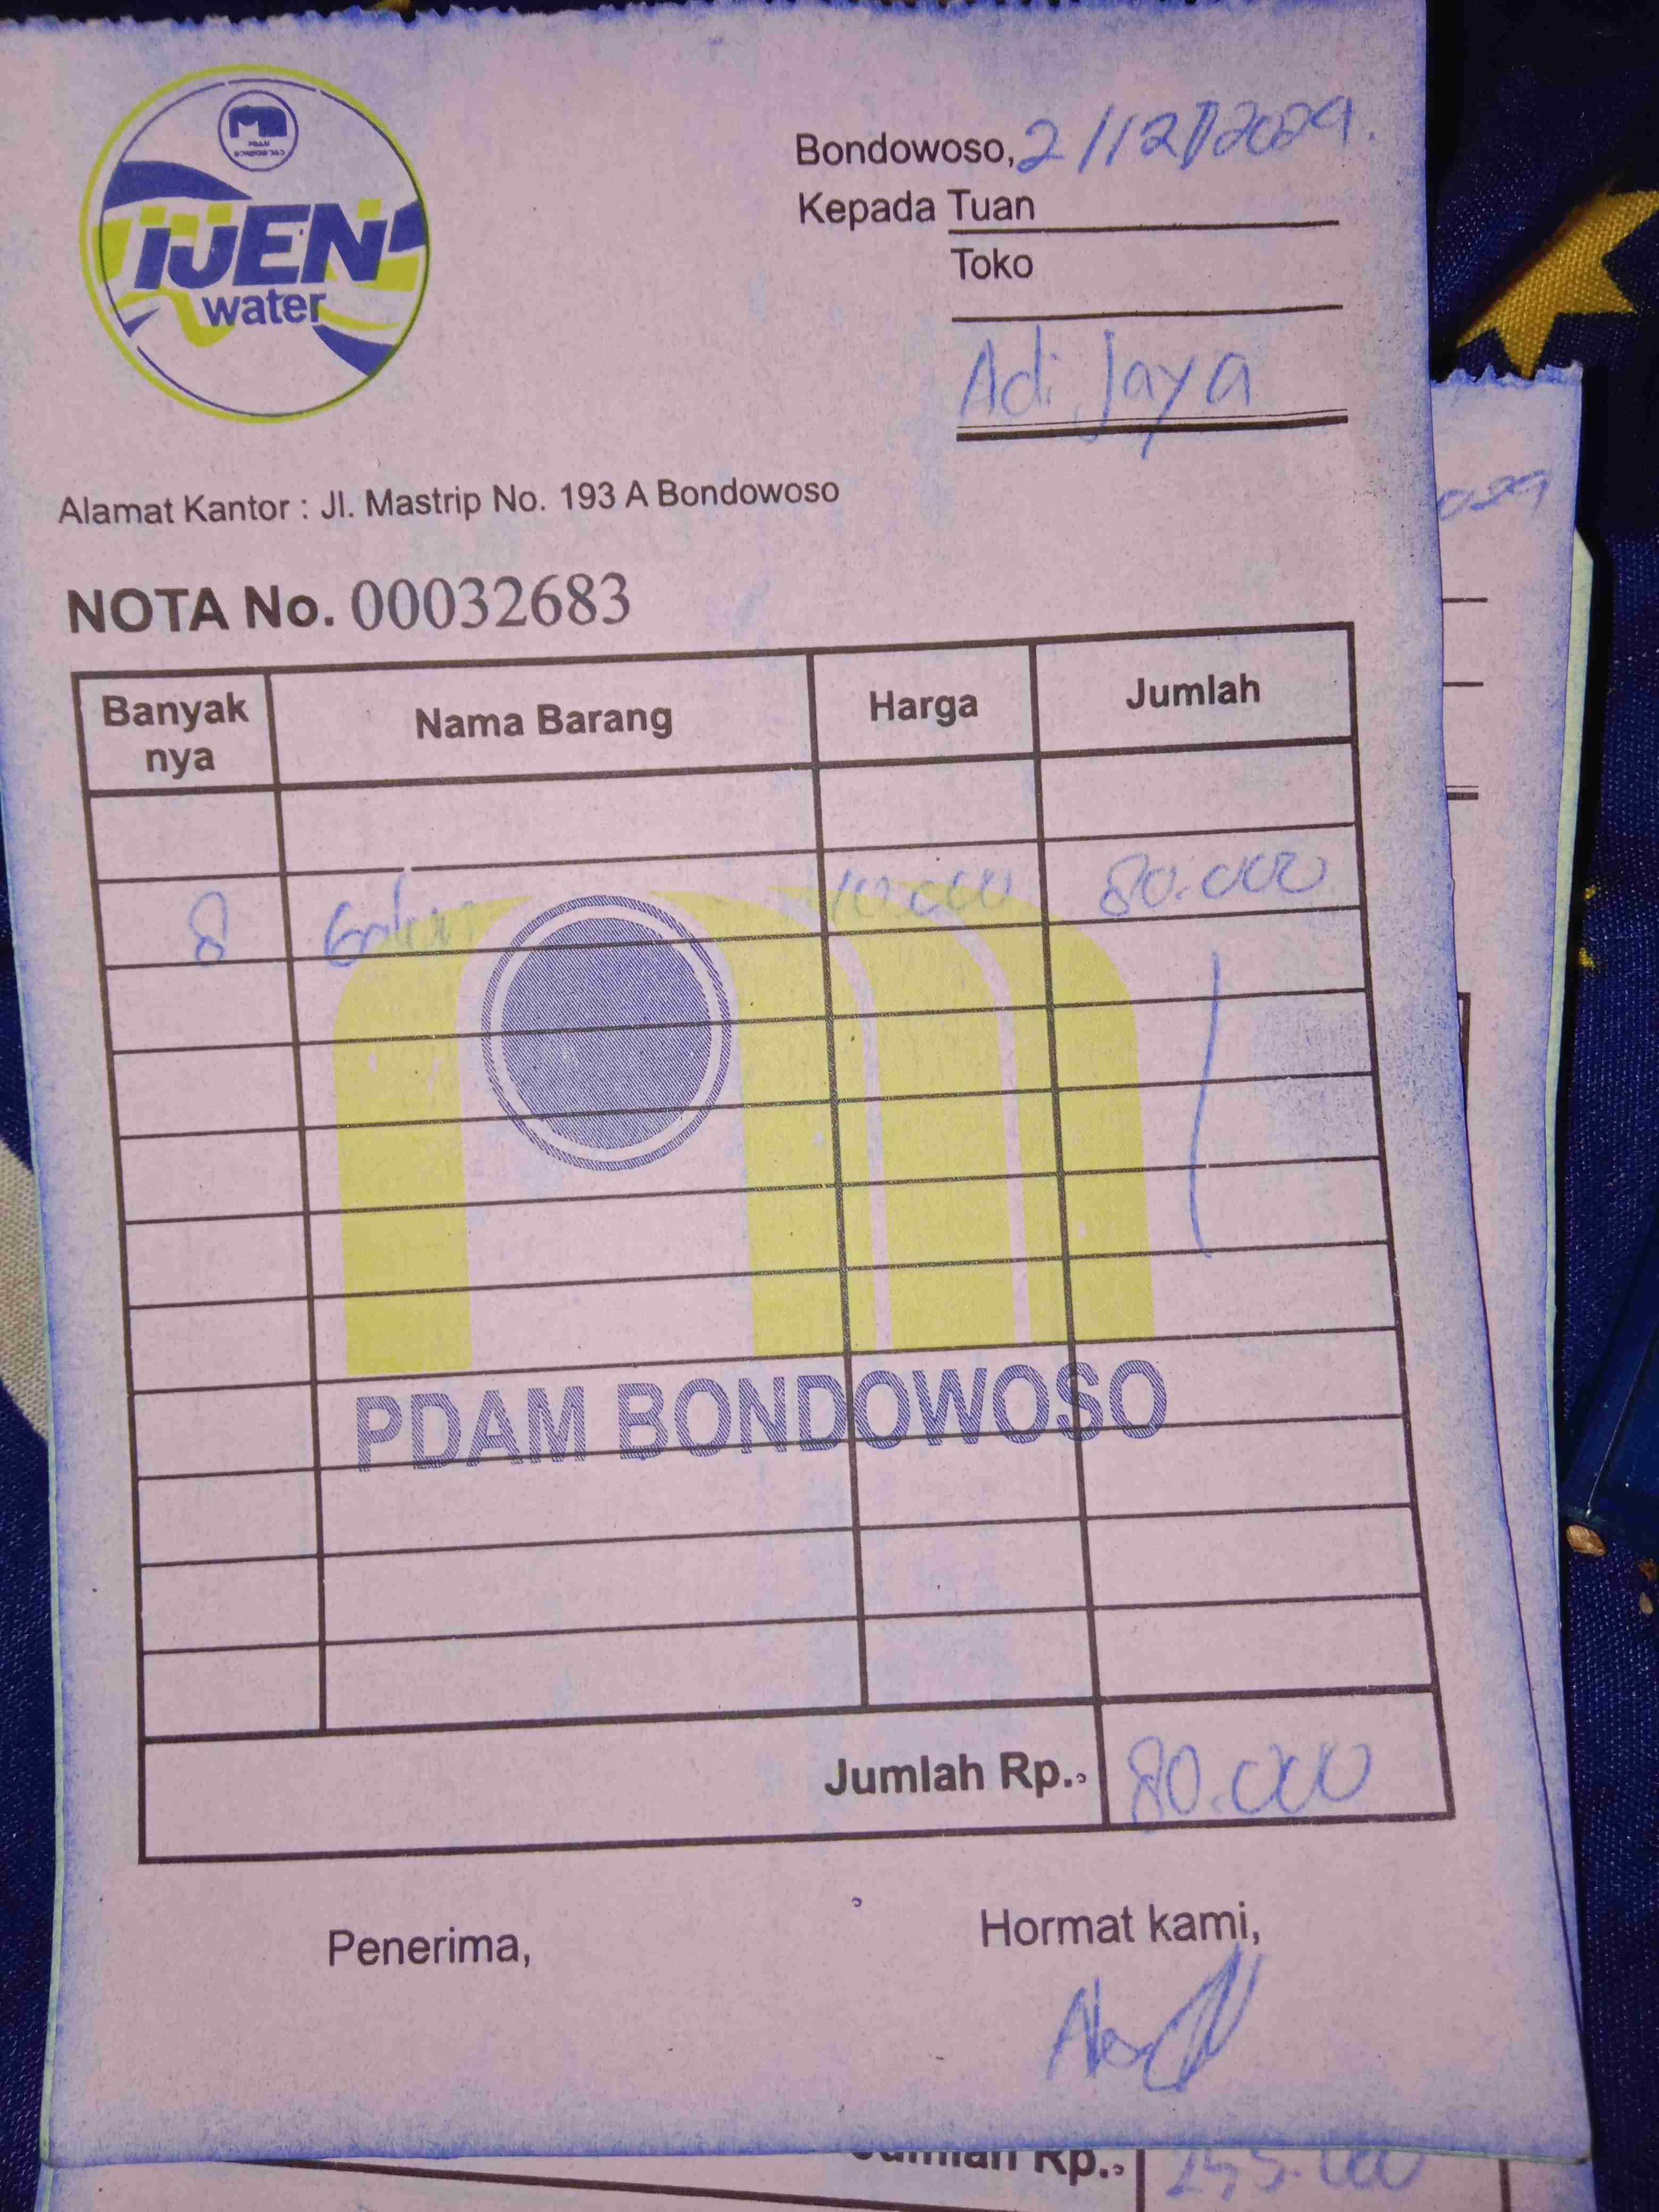 iJEN
water
Bondowoso, 2/12/2024.
Kepada Tuan
Toko
Adi Jaya
Alamat Kantor : Jl. Mastrip No. 193 A Bondowoso
NOTA No. 00032683
Banyak nya Nama Barang Harga Jumlah
8 Galon 10.000 80.000
PDAM BONDOWOSO
Jumlah Rp. 80.000
Penerima, Hormat kami,
Jumlah Rp. 255.000